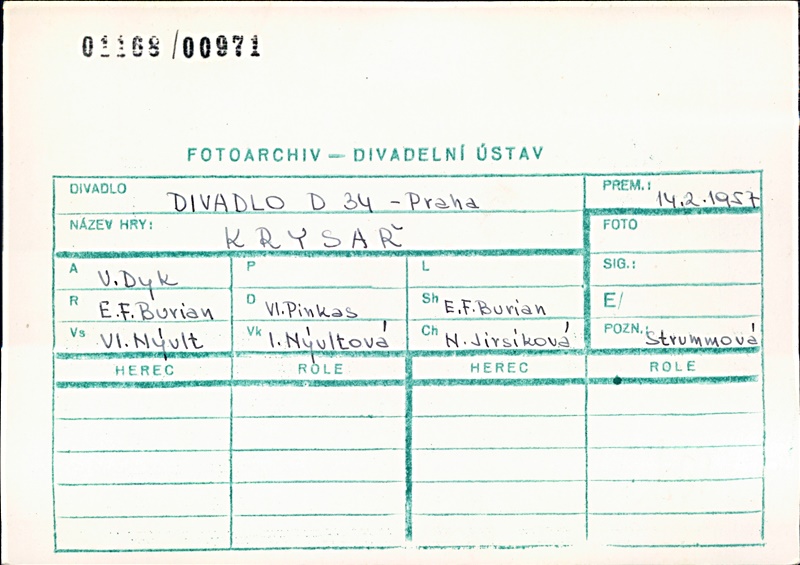 01168/00971
FOTOARCHIV — DIVADELNÍ ÚSTAV
DIVADLO DIVADLO D 34 - Praha
PREM.: 14.2.1957
NÁZEV HRY: KRYSAŘ
FOTO
A V. Dyk
P
L
SIG.:
R E.F. Burian
D Vl. Pinkas
Sh E.F. Burian
E/
Vs Vl. Nývlt
Vk I. Nývltová
Ch N. Jirsíková
POZN.: Štrummová
HEREC ROLE HEREC ROLE